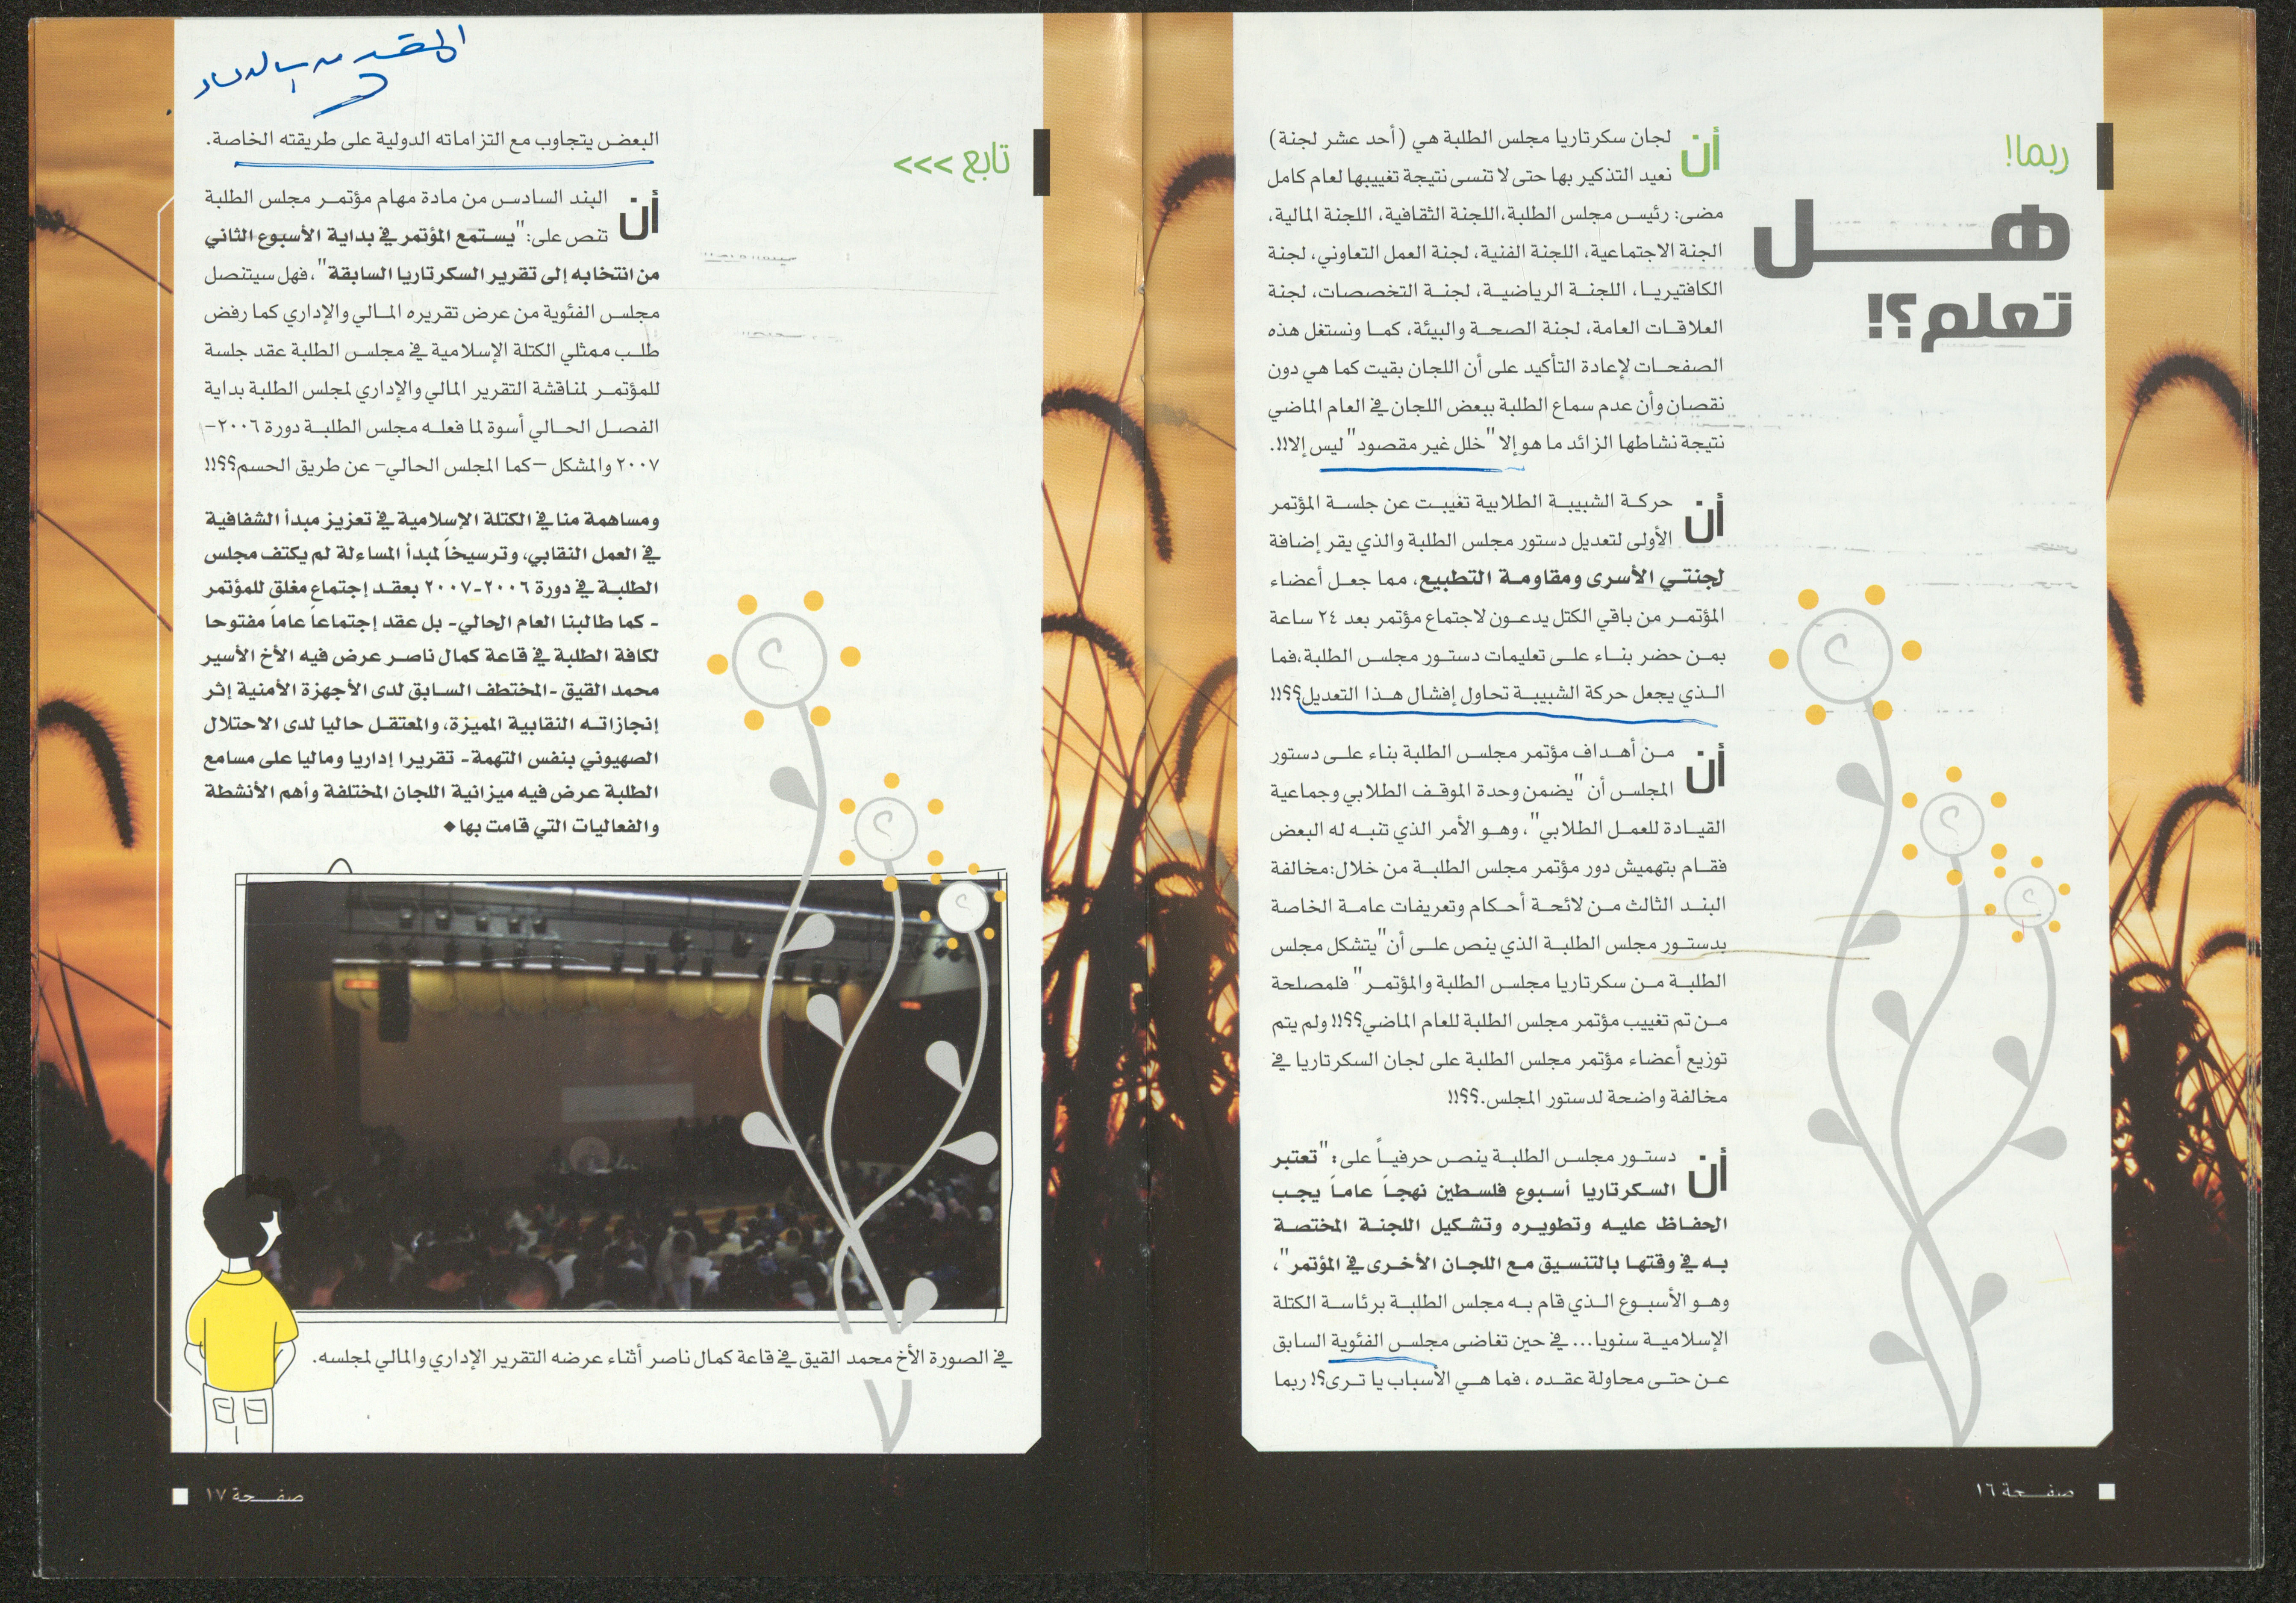 ربما!
هـــل
تعلم؟!
أن لجان سكرتاريا مجلس الطلبة هي (أحد عشر لجنة)
نعيد التذكير بها حتى لا تنسى نتيجة تغييبها لعام كامل
مضى: رئيس مجلس الطلبة،اللجنة الثقافية، اللجنة المالية،
الجنة الاجتماعية، اللجنة الفنية، لجنة العمل التعاوني، لجنة
الكافتيريا، اللجنة الرياضية، لجنة التخصصات، لجنة
العلاقات العامة، لجنة الصحة والبيئة، كما ونستغل هذه
الصفحات لإعادة التأكيد على أن اللجان بقيت كما هي دون
نقصان وأن عدم سماع الطلبة ببعض اللجان في العام الماضي
نتيجة نشاطها الزائد ما هو إلا "خلل غير مقصود" ليس إلا!!.
أن حركة الشبيبة الطلابية تغيبت عن جلسة المؤتمر
الأولى لتعديل دستور مجلس الطلبة والذي يقر إضافة
لجنتي الأسرى ومقاومة التطبيع، مما جعل أعضاء
المؤتمر من باقي الكتل يدعون لاجتماع مؤتمر بعد ٢٤ ساعة
بمن حضر بناء على تعليمات دستور مجلس الطلبة،فما
الذي يجعل حركة الشبيبة تحاول إفشال هذا التعديل؟؟!!
أن من أهداف مؤتمر مجلس الطلبة بناء على دستور
المجلس أن "يضمن وحدة الموقف الطلابي وجماعية
القيادة للعمل الطلابي"، وهو الأمر الذي تنبه له البعض
فقام بتهميش دور مؤتمر مجلس الطلبة من خلال:مخالفة
البند الثالث من لائحة أحكام وتعريفات عامة الخاصة
بدستور مجلس الطلبة الذي ينص على أن"يتشكل مجلس
الطلبة من سكرتاريا مجلس الطلبة والمؤتمر" فلمصلحة
من تم تغييب مؤتمر مجلس الطلبة للعام الماضي؟؟!! ولم يتم
توزيع أعضاء مؤتمر مجلس الطلبة على لجان السكرتاريا في
مخالفة واضحة لدستور المجلس.؟؟!!
أن دستور مجلس الطلبة ينص حرفياً على: "تعتبر
السكرتاريا أسبوع فلسطين نهجاً عاماً يجب
الحفاظ عليه وتطويره وتشكيل اللجنة المختصة
به في وقتها بالتنسيق مع اللجان الأخرى في المؤتمر"،
وهو الأسبوع الذي قام به مجلس الطلبة برئاسة الكتلة
الإسلامية سنويا... في حين تغاضى مجلس الفئوية السابق
عن حتى محاولة عقده ، فما هي الأسباب يا ترى؟! ربما
صفحة ١٦
تابع >>>
البعض يتجاوب مع التزاماته الدولية على طريقته الخاصة.
أن البند السادس من مادة مهام مؤتمر مجلس الطلبة
تنص على:"يستمع المؤتمر في بداية الأسبوع الثاني
من انتخابه إلى تقرير السكرتاريا السابقة"، فهل سيتنصل
مجلس الفئوية من عرض تقريره المالي والإداري كما رفض
طلب ممثلي الكتلة الإسلامية في مجلس الطلبة عقد جلسة
للمؤتمر لمناقشة التقرير المالي والإداري لمجلس الطلبة بداية
الفصل الحالي أسوة لما فعله مجلس الطلبة دورة ٢٠٠٦–
٢٠٠٧ والمشكل –كما المجلس الحالي– عن طريق الحسم؟؟!!
ومساهمة منا في الكتلة الإسلامية في تعزيز مبدأ الشفافية
في العمل النقابي، وترسيخاً لمبدأ المساءلة لم يكتف مجلس
الطلبة في دورة ٢٠٠٦-٢٠٠٧ بعقد إجتماع مغلق للمؤتمر
- كما طالبنا العام الحالي- بل عقد إجتماعاً عاماً مفتوحا
لكافة الطلبة في قاعة كمال ناصر عرض فيه الأخ الأسير
محمد القيق -المختطف السابق لدى الأجهزة الأمنية إثر
إنجازاته النقابية المميزة، والمعتقل حاليا لدى الاحتلال
الصهيوني بنفس التهمة- تقريرا إداريا وماليا على مسامع
الطلبة عرض فيه ميزانية اللجان المختلفة وأهم الأنشطة
والفعاليات التي قامت بها◆
في الصورة الأخ محمد القيق في قاعة كمال ناصر أثناء عرضه التقرير الإداري والمالي لمجلسه.
صفحة ١٧